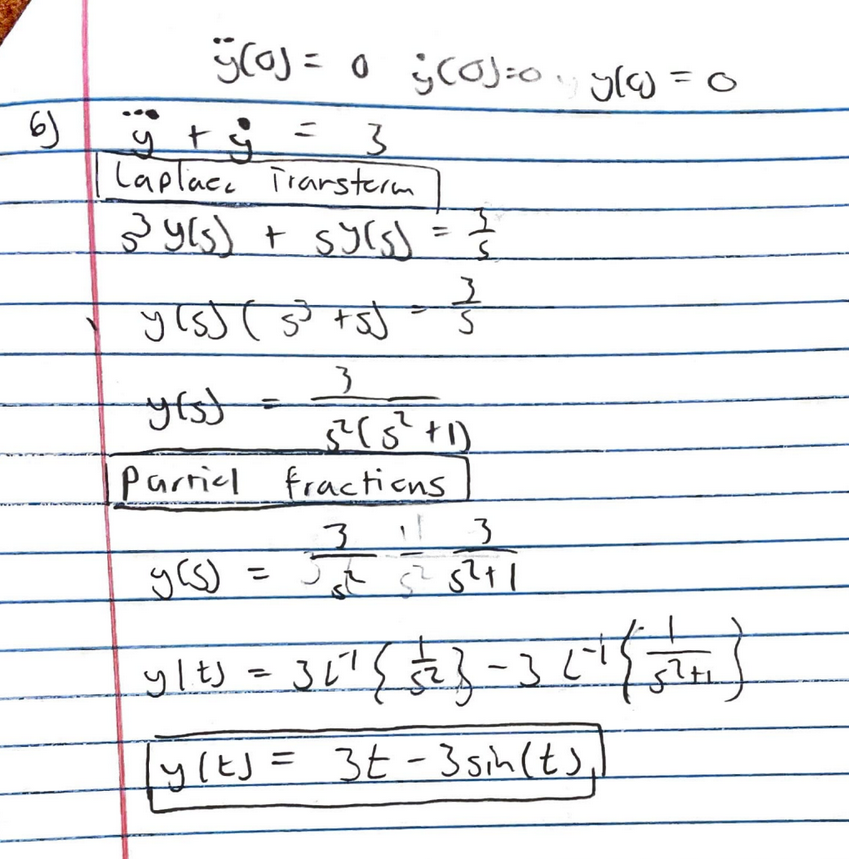 ÿ(0) = 0 ẏ(0)=0 y(0) = 0
6) y⃛ + ẏ = 3
Laplace Transform
s³ y(s) + sy(s) = 3/s
y(s) ( s³ + s) = 3/s
y(s) = 3/(s²(s² + 1))
Partial fractions
y(s) = 3/s² - 3/(s²+1)
y(t) = 3L⁻¹{1/s²} - 3 L⁻¹{1/(s²+1)}
y(t) = 3t - 3sin(t)